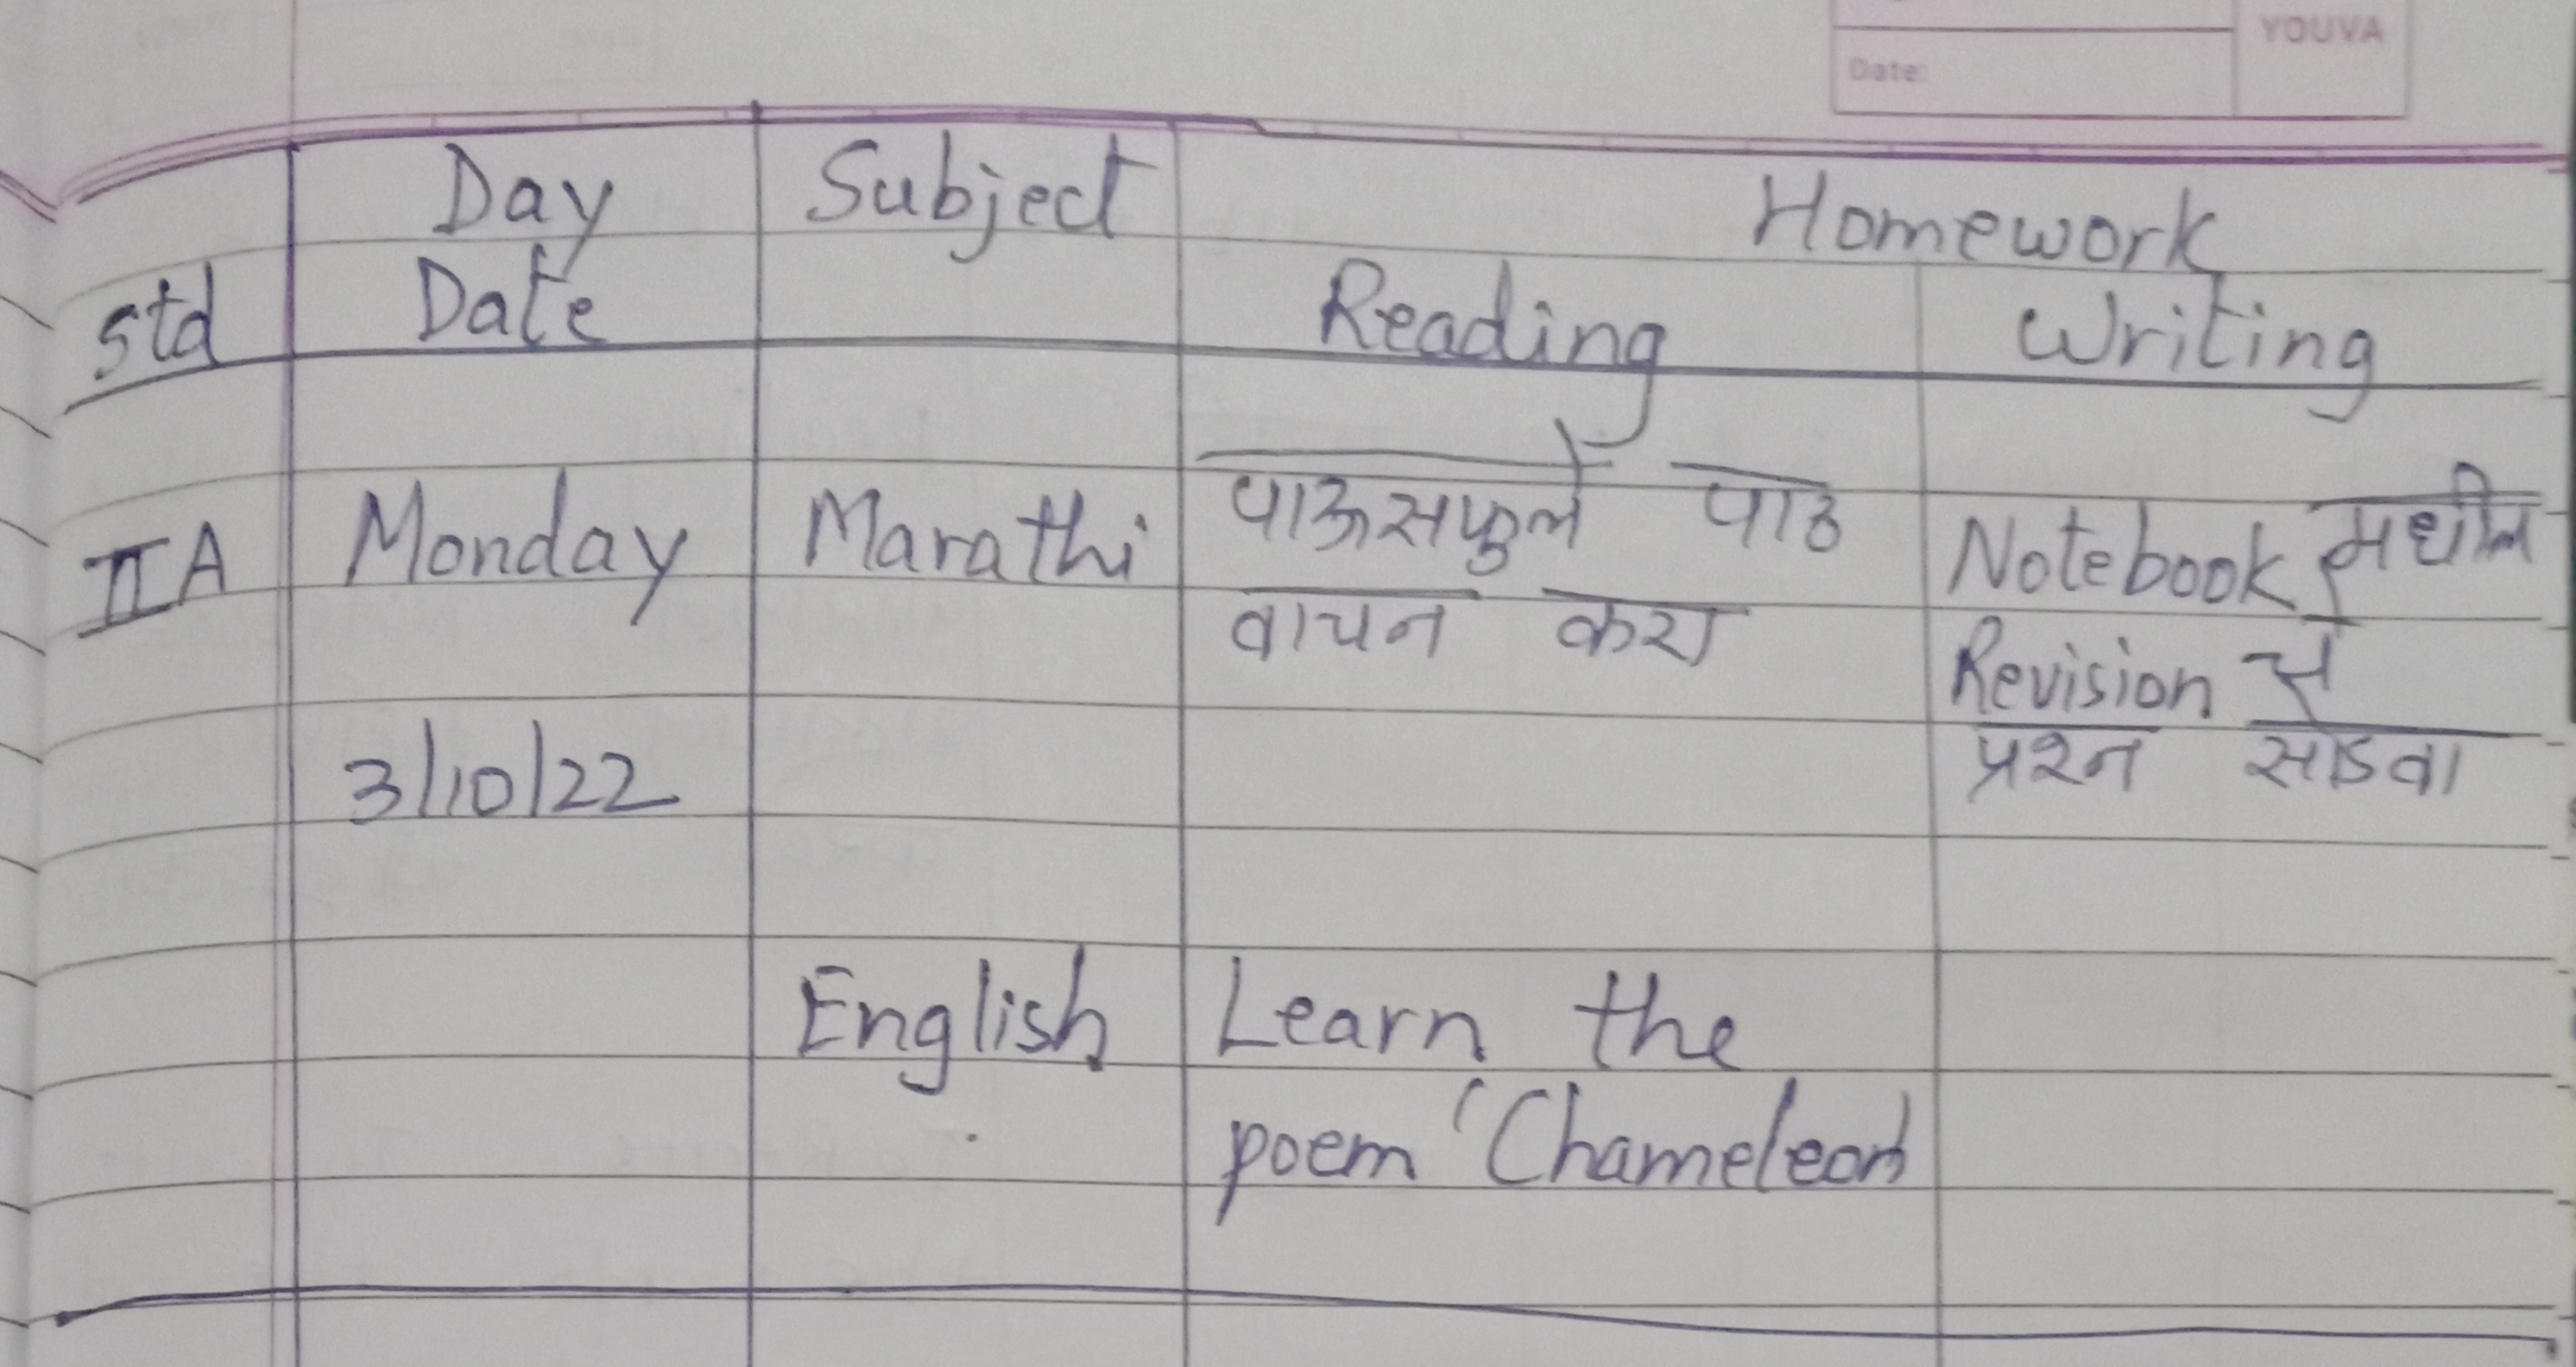 YOUVA
Date:
Day Subject Homework
Std Date Reading Writing
II A Monday Marathi पाऊसफुले पाठ Notebook मधील
वाचन करा Revision चे
3/10/22 प्रश्न सोडवा
English Learn the
poem 'Chameleon'